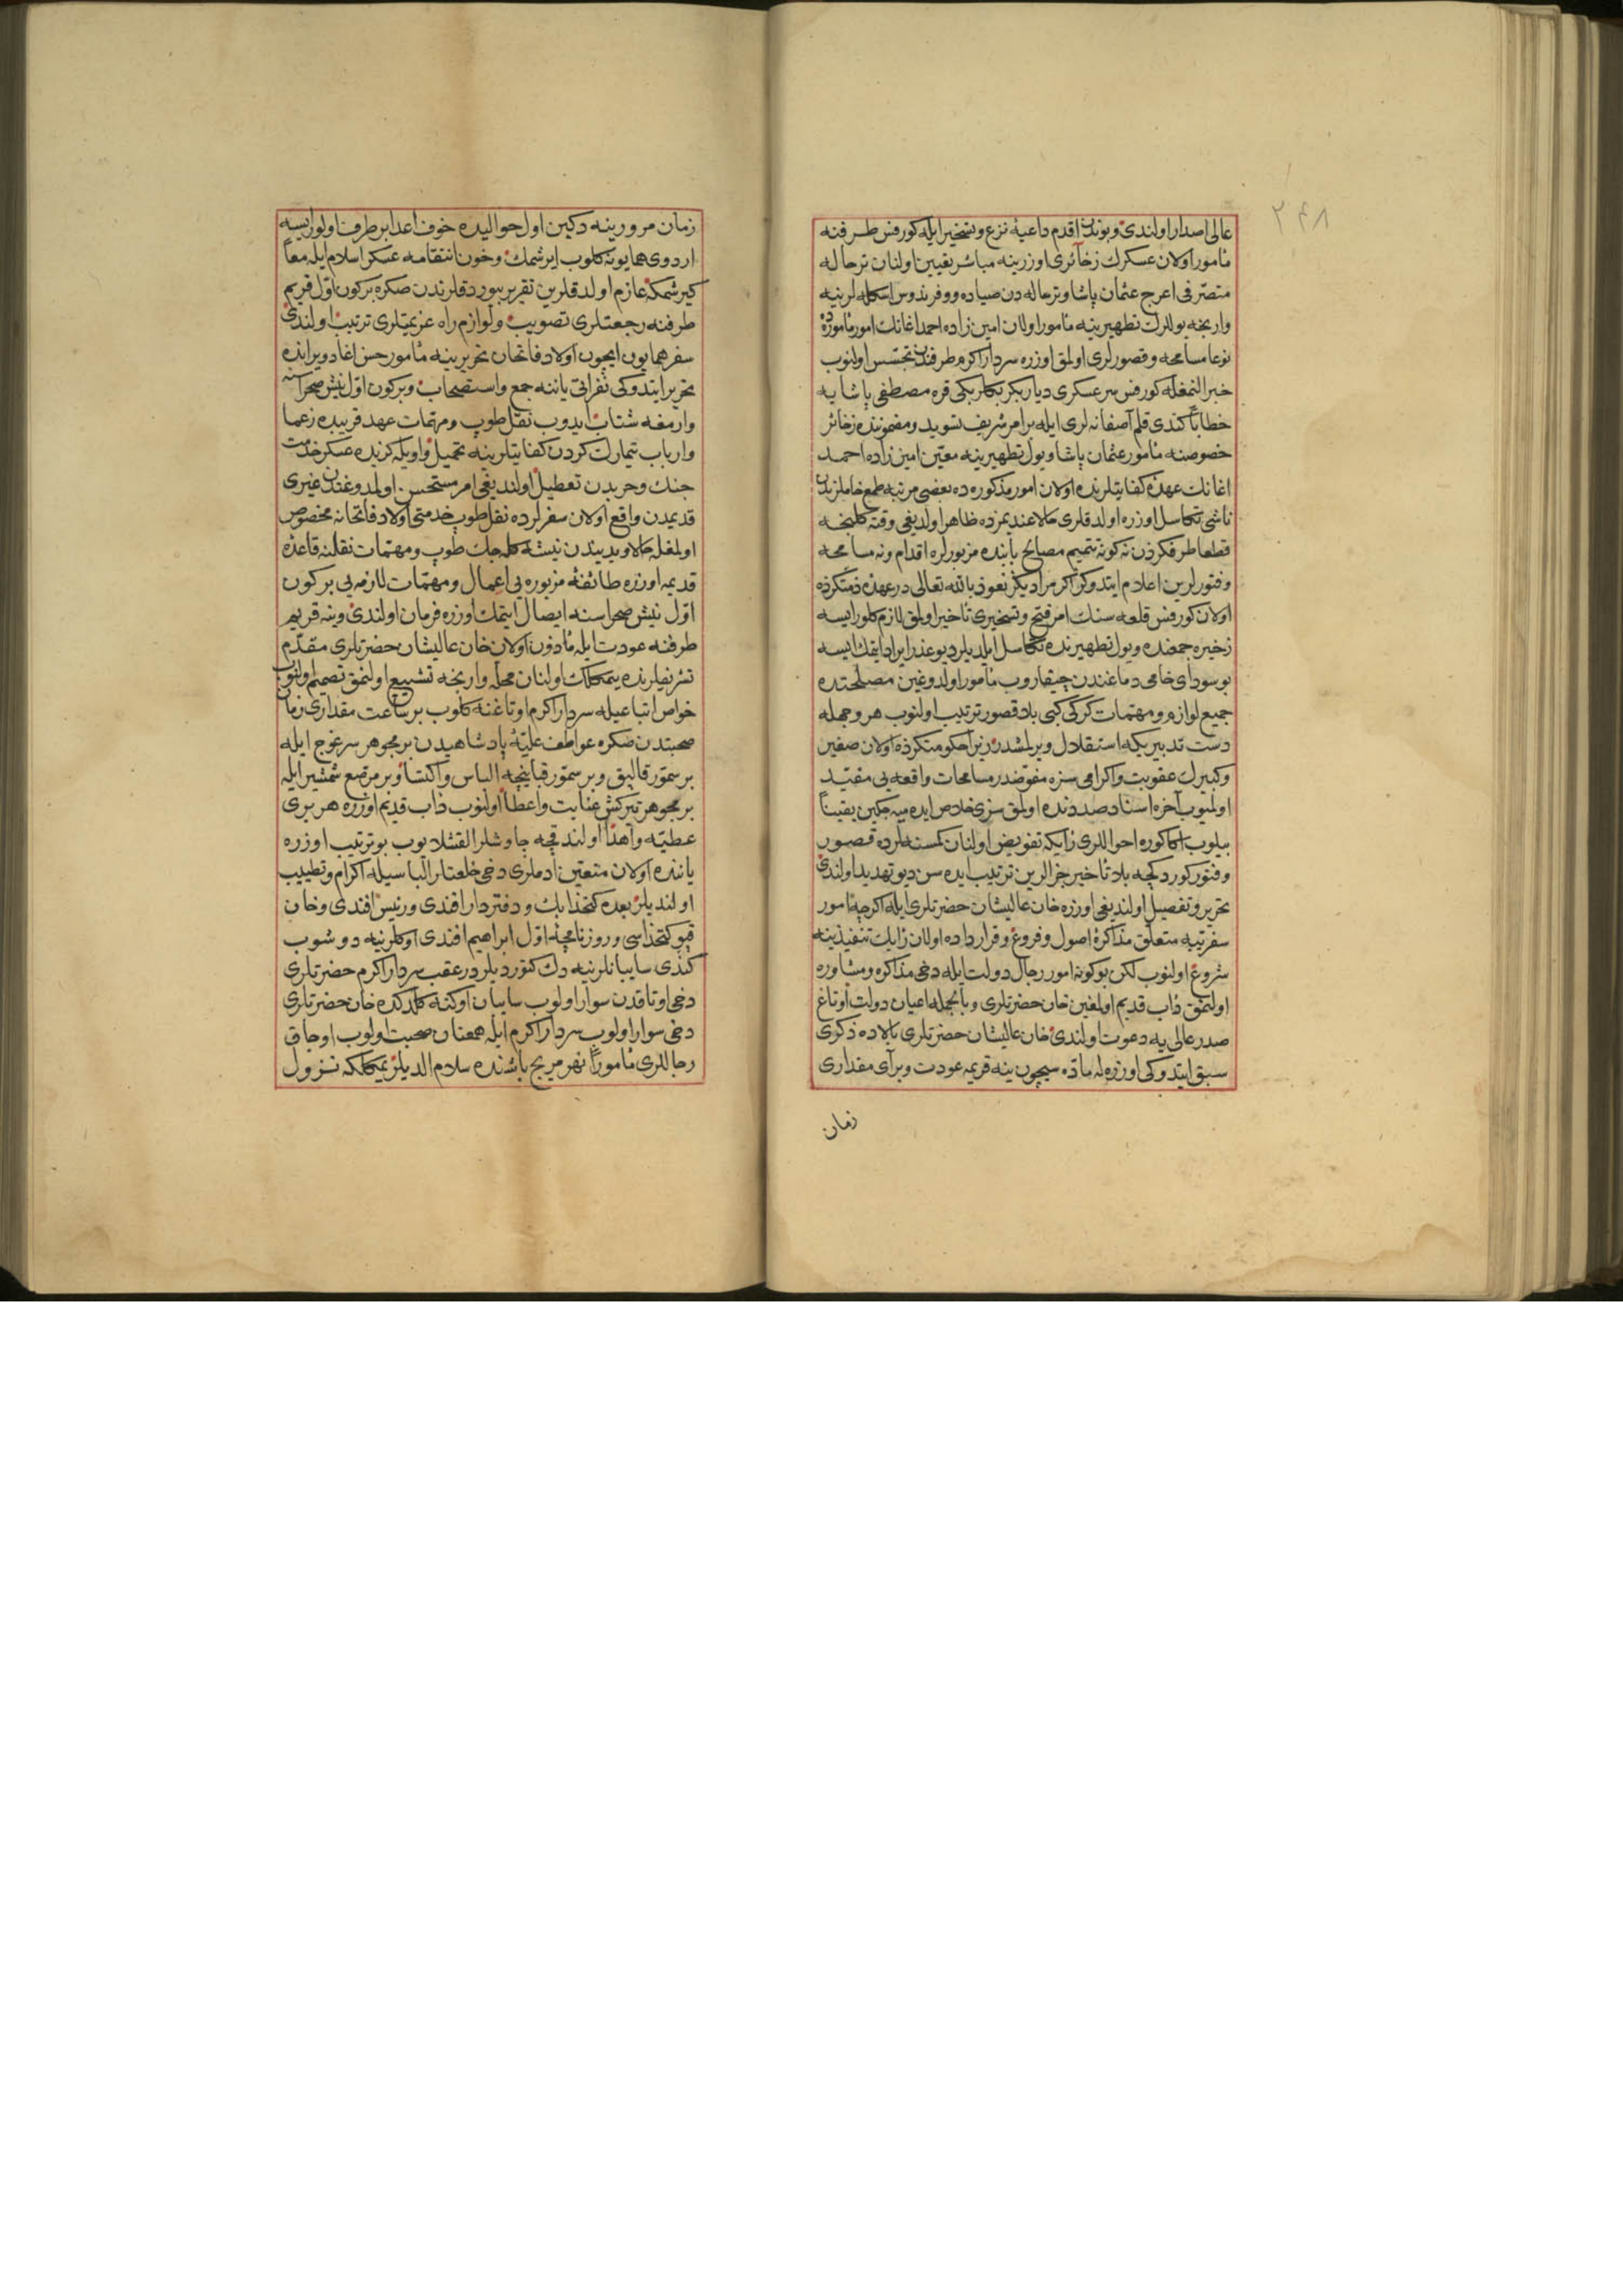 ٢٤٨
عالی اصدار اولندی و بوندن اقدم داعیهٔ نزع و تسخیر ایله کورفس طرفنه
مأمور اولان عسکرك زخائری اوزرینه مباشر تعیین اولنان ترحاله
متصرفی اعرج عثمان پاشا و ترحاله دن صیاده و وفرندوس اسکله لرینه
وارنجه یوللرك تطهیرینه مأمور اولان امین زاده احمد اغانك امور مأموره ده
نوعا مسامحه و قصورلری اولمق اوزره سردار اکرم طرفندن تجسس اولنوب
خبر النمغله کورفس سرعسکری دیاربکر بکلربکی قره مصطفی پاشایه
خطابا کندی قلم آصفانه لری ایله بر امر شریف تسوید و مضموننده زخائر
خصوصنه مأمور عثمان پاشا و یول تطهیرینه معین امین زاده احمد
اغانك عهدهٔ کفایتلرنده اولان امور مذکوره ده بعضی مرتبه طمع خاملرندن
ناشی تکاسل اوزره اولدقلری حالا عندیمزده ظاهر اولدیغی وقته کلنجه
قطعا طرفکزدن نه کونه تتمیم مصالح بابنده مزبورلره اقدام و نه مسامحه
و فتورلرین اعلام ایتدوکز اکر مرادیکز نعوذ بالله تعالی در عهدهٔ ذمتکزده
اولان کورفس قلعه سنك امر فتح و تسخیری تأخیر اولمق لازم کلور ایسه
زخیره جمعنده و یول تطهیرنده تکاسل ایلدیلر دیو عذر ایراد ایتمك ایسه
بو سودای خامی دماغندن چیقاروب مأمور اولدوغین مصلحتده
جمیع لوازم و مهمات کرکی کبی بلا قصور ترتیب اولنوب هر وجهله
دست تدبیریکه استقلال ویرلمشدر زیرا حکومتکزده اولان صغیر
و کبیرك عقوبت و اکرامی سزه مفوضدر مسامحات واقعه یی مقید
اولمیوب آخره اسناد صددنده اولمق سزی خلاص ایده میه جکین یقیناً
بیلوب اکا کوره احواللری رأیکه تفویض اولنان کمسنه لرده قصور
و فتور کوردکجه بلا تأخیر جزالرین ترتیب ایده سن دیو تهدید اولندی
تحریر و تفصیل اولندیغی اوزره خان عالیشان حضرتلری ایله اکرچه امور
سفریه متعلق مذاکرهٔ اصول و فروغ و قرارداده اولان رأیك تنفیذینه
شروع اولنوب لکن بو کونه امور رجال دولت ایله دخی مذاکره و مشاوره
اولنمق دأب قدیم اولمغین خان حضرتلری و بالجمله اعیان دولت اوتاغ
صدر عالی یه دعوت اولندی خان عالیشان حضرتلری بالاده ذکری
سبق ایتدوکی اوزره له ماده سیچون ینه قریمه عودت و بر آی مقداری
زمان
زمان مرورینه دکین اول حوالیده خوف اعدا بر طرف اولور ایسه
اردوی همایونه کلوب ایرشمك و خون انتقامه عسکر اسلام ایله معاً
کیرشمکه عازم اولدقلرین تقریر بیوردقلرندن صکره برکون اول قریم
طرفنه رجعتلری تصویب و لوازم راه عزیمتلری ترتیب اولندی
سفر همایون ایچون اولاد فاتحان تحریرینه مأمور حسن اغا دویرانده
تحریر ایتدوکی نفراتی یاننه جمع و استصحاب و برکون اول نیش صحراسنه
وارمغه شتاب ایدوب نقل طوپ و مهمات عهد قریبده زعما
و ارباب تیمارك کردن کفایتلرینه تحمیل و اویله کزیده عسکر خدمت
جنك و حربدن تعطیل اولندیغی امر مستحسن اولمدوغندن غیری
قدیمدن واقع اولان سفرلرده نقل طوپ خدمتی اولاد فاتحانه مخصوص
اولمغله حالا ویدیندن نیشه کله جك طوپ و مهمات نقلنه قاعدهٔ
قدیمه اوزره طائفهٔ مزبوره یی اعمال و مهمات لازمه یی برکون
اول نیش صحراسنه ایصال ایتمك اوزره فرمان اولندی و ینه قریم
طرفنه عودت ایله مأذون اولان خان عالیشان حضرتلری مقدم
تشریفلرنده یتمکلك اولنان محله وارنجه تشییع اولنمق تصمیم اولنوب
خواص اتباعیله سردار اکرم اوتاغنه کلوب بر ساعت مقداری زمان
صحبتدن صکره عواطف علیهٔ پادشاهیدن بر مجوهر سرغوج ایله
بر سمور قالپق و بر سمور قبانیچه الباس و اکتسا و بر مرصع شمشیر ایله
بر مجوهر تیرکش عنایت و اعطا اولنوب دأب قدیم اوزره هر بری
عطیه و اهدا اولندقچه چاوشلر القشلایوب بو ترتیب اوزره
یاننده اولان متعین ادملری دخی خلعتلر الباسیله اکرام و تطییب
اولندیلر بعده کتخدا بك و دفتردار افندی و رئیس افندی و خان
قپو کتخداسی و روزنامجهٔ اول ابراهیم افندی اوکلرینه دوشوب
کندی سایبانلرینه دك کتوردیلر در عقب سردار اکرم حضرتلری
دخی اوتاقدن سوار اولوب سایبان اوکنه کلدکده خان حضرتلری
دخی سوار اولوب سردار اکرم ایله همعنان صحبت اولوب اوجاق
رجاللری مأموراً نهر مریج باشنده سلام الدیلر یمکلکه نزول